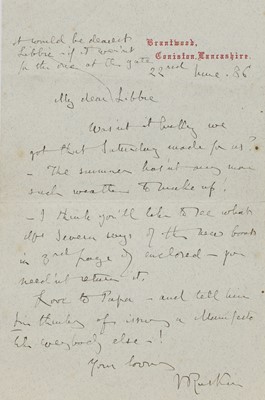 It would be dearest
Libbie - if it weren't
for the one at the gate
Brantwood,
Coniston, Lancashire.
22nd June. 86
My dear Libbie
Wasn't it lucky we
got that Saturday made for us?
- The summer hasn't any more
such weather to make up!
- I think you'll like to see what
Severn says of the new boat
in page enclosed - you
needn't return it.
Love to Papa - and tell him
I'm thinking of issuing a Manifesto
like everybody else - !
Your loving
JRuskin